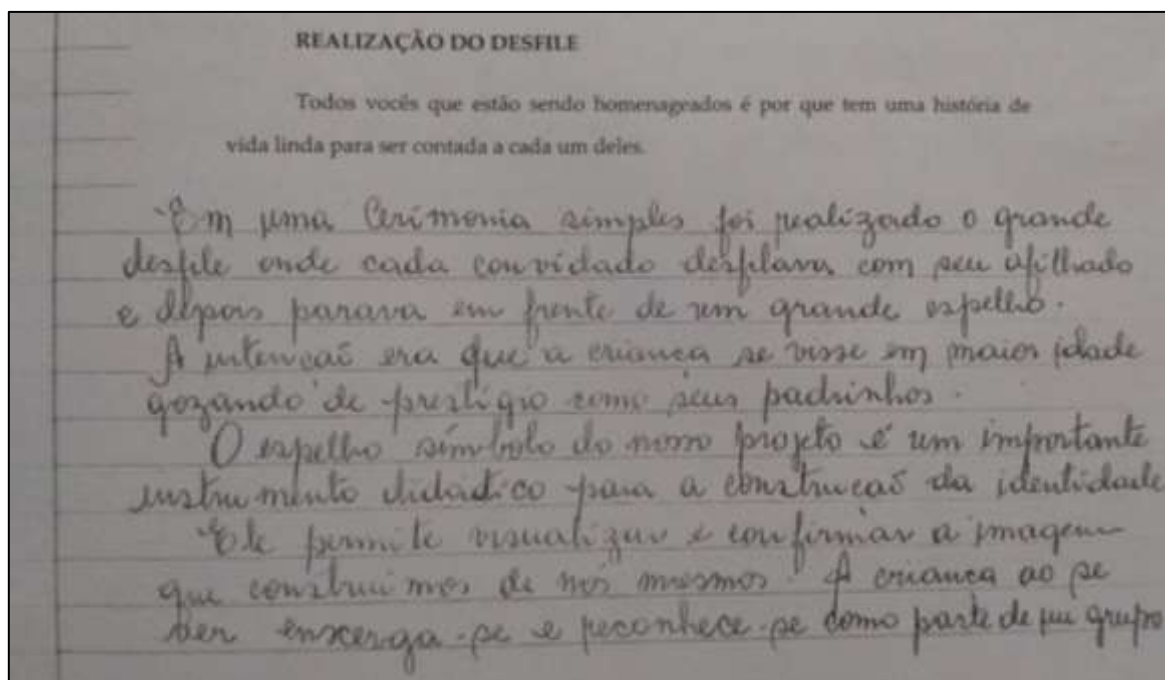 REALIZAÇÃO DO DESFILE
Todos vocês que estão sendo homenageados é por que tem uma história de
vida linda para ser contada a cada um deles.
Em uma Cerimonia simples foi realizado o grande
desfile onde cada convidado desfilava com seu afilhado
e depois parava em frente de um grande espelho.
A intenção era que a criança se visse em maior idade
gozando de prestígio como seus padrinhos.
O espelho símbolo do nosso projeto é um importante
instrumento didático para a construção da identidade
Ele permite visualizar e confirmar a imagem
que construimos de nós mesmos. A criança ao se
ver enxerga-se e reconhece-se como parte de seu grupo